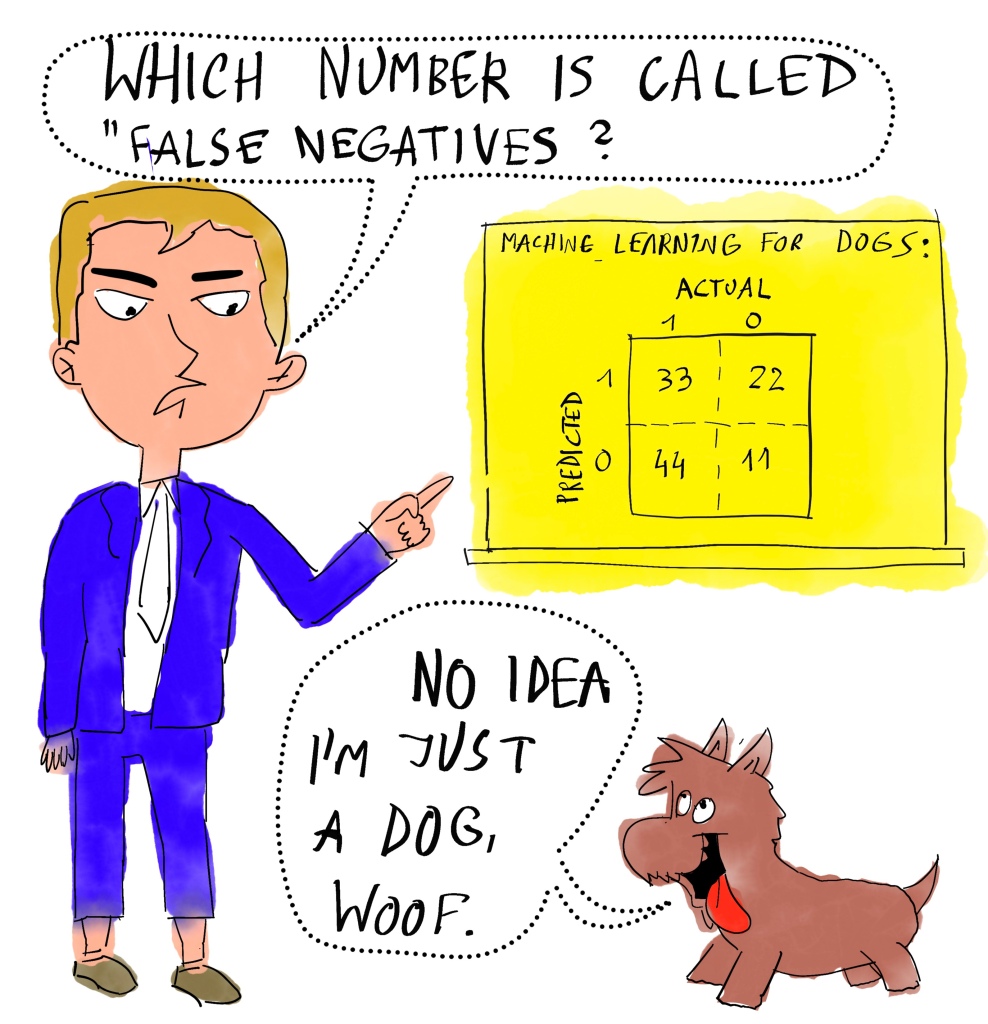 WHICH NUMBER IS CALLED
"FALSE NEGATIVES ?
MACHINE LEARNING FOR DOGS:
ACTUAL
1 0
PREDICTED
1 33 22
0 44 11
NO IDEA
I'M JUST
A DOG,
WOOF.